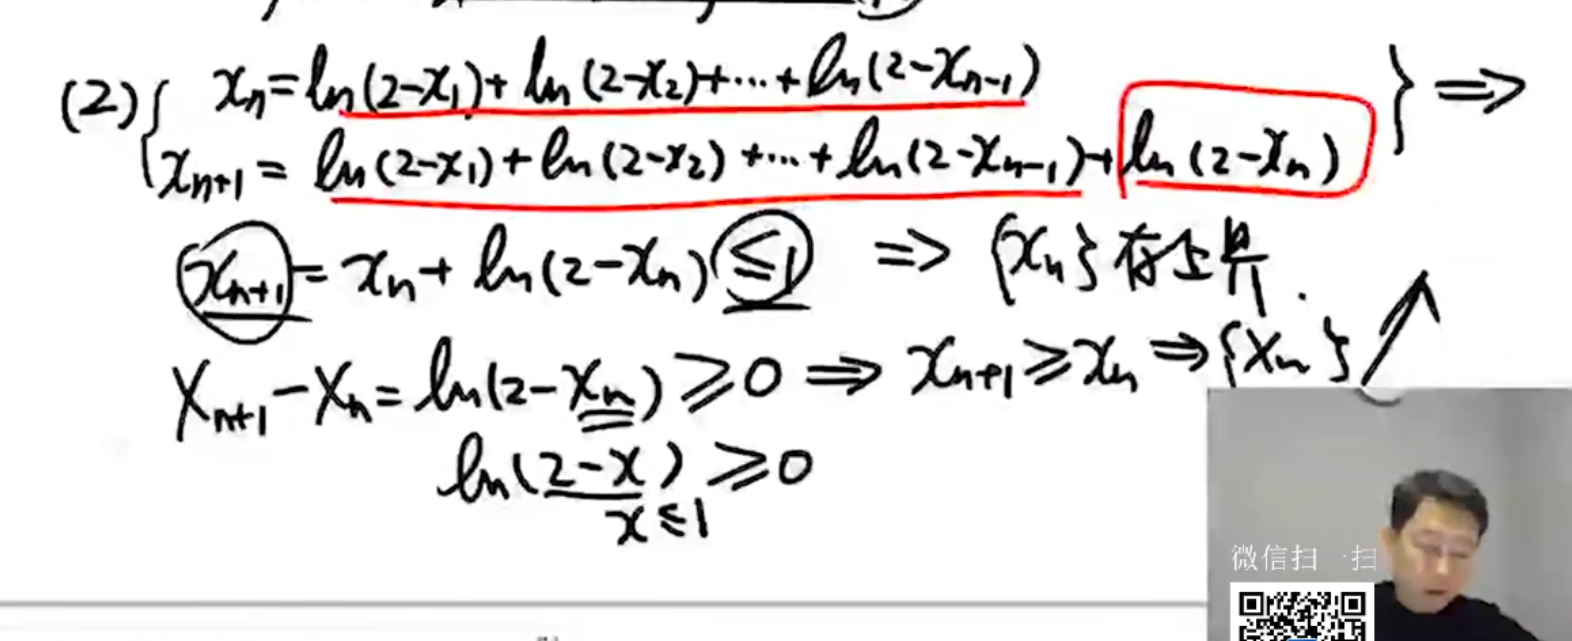 (2) { xₙ = ln(2-x₁) + ln(2-x₂) + ... + ln(2-xₙ₋₁) } ⇒
xₙ₊₁ = ln(2-x₁) + ln(2-x₂) + ... + ln(2-xₙ₋₁) + ln(2-xₙ)
xₙ₊₁ = xₙ + ln(2-xₙ) ≤ 1 ⇒ {xₙ} 存上界.
xₙ₊₁ - xₙ = ln(2-xₙ) ≥ 0 ⇒ xₙ₊₁ ≥ xₙ ⇒ {xₙ} ↗
ln(2-x) ≥ 0
x ≤ 1
微信扫一扫